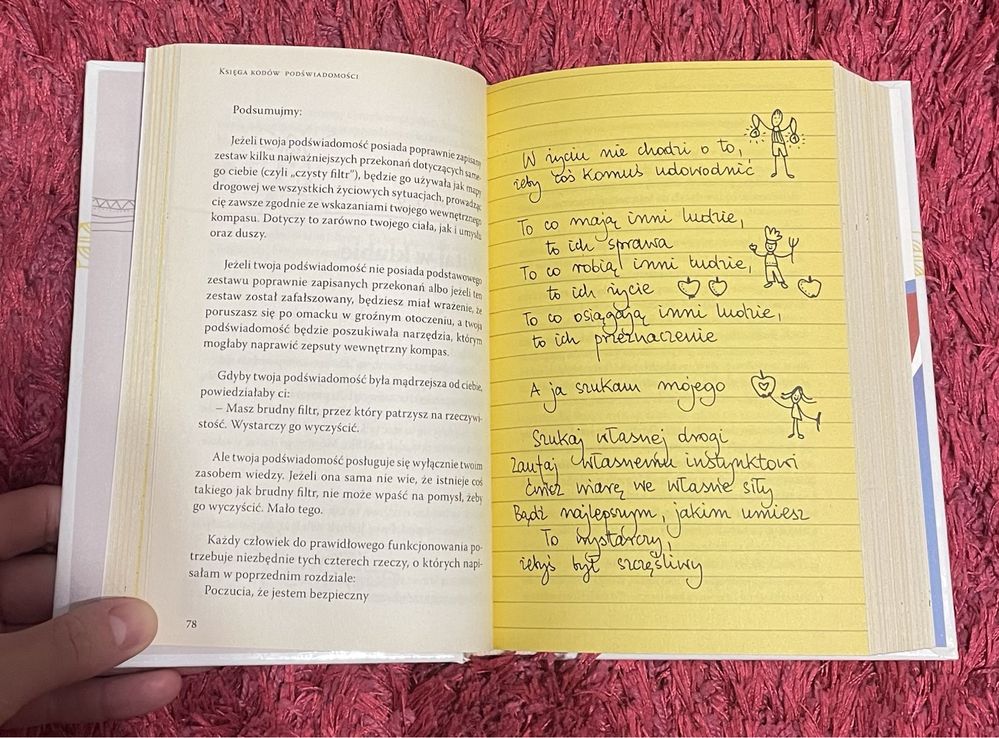 Księga kodów podświadomości
Podsumujmy:
Jeżeli twoja podświadomość posiada poprawnie zapisany
zestaw kilku najważniejszych przekonań dotyczących same-
go ciebie (czyli „czysty filtr”), będzie go używała jak mapy
drogowej we wszystkich życiowych sytuacjach, prowadząc
cię zawsze zgodnie ze wskazaniami twojego wewnętrznego
kompasu. Dotyczy to zarówno twojego ciała, jak i umysłu
oraz duszy.
Jeżeli twoja podświadomość nie posiada podstawowego
zestawu poprawnie zapisanych przekonań albo jeżeli ten
zestaw został zafałszowany, będziesz miał wrażenie, że
poruszasz się po omacku w groźnym otoczeniu, a twoja
podświadomość będzie poszukiwała narzędzia, którym
mogłaby naprawić zepsuty wewnętrzny kompas.
Gdyby twoja podświadomość była mądrzejsza od ciebie,
powiedziałaby ci:
– Masz brudny filtr, przez który patrzysz na rzeczywi-
stość. Wystarczy go wyczyścić.
Ale twoja podświadomość posługuje się wyłącznie twoim
zasobem wiedzy. Jeżeli ona sama nie wie, że istnieje coś
takiego jak brudny filtr, nie może wpaść na pomysł, żeby
go wyczyścić. Mało tego.
Każdy człowiek do prawidłowego funkcjonowania po-
trzebuje niezbędnie tych czterech rzeczy, o których napi-
sałam w poprzednim rozdziale:
Poczucia, że jestem bezpieczny
78
W życiu nie chodzi o to,
żeby coś komuś udowodnić
To co mają inni ludzie,
to ich sprawa
To co robią inni ludzie,
to ich życie
To co osiągają inni ludzie,
to ich przeznaczenie
A ja szukam mojego
Szukaj własnej drogi
Zaufaj własnemu instynktowi
Ćwicz wiarę we własne siły
Bądź najlepszym, jakim umiesz
To wystarczy,
żebyś był szczęśliwy